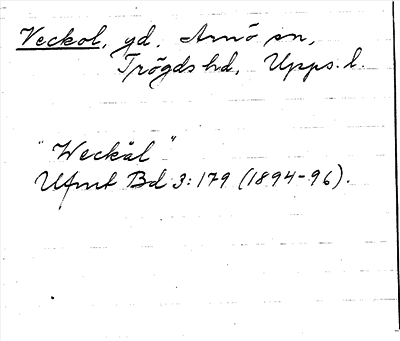 Veckol, gd, Arnö sn,
Trögds hd, Upps. l.
"Weckål"
Ufmt Bd 3:179 (1894-96).